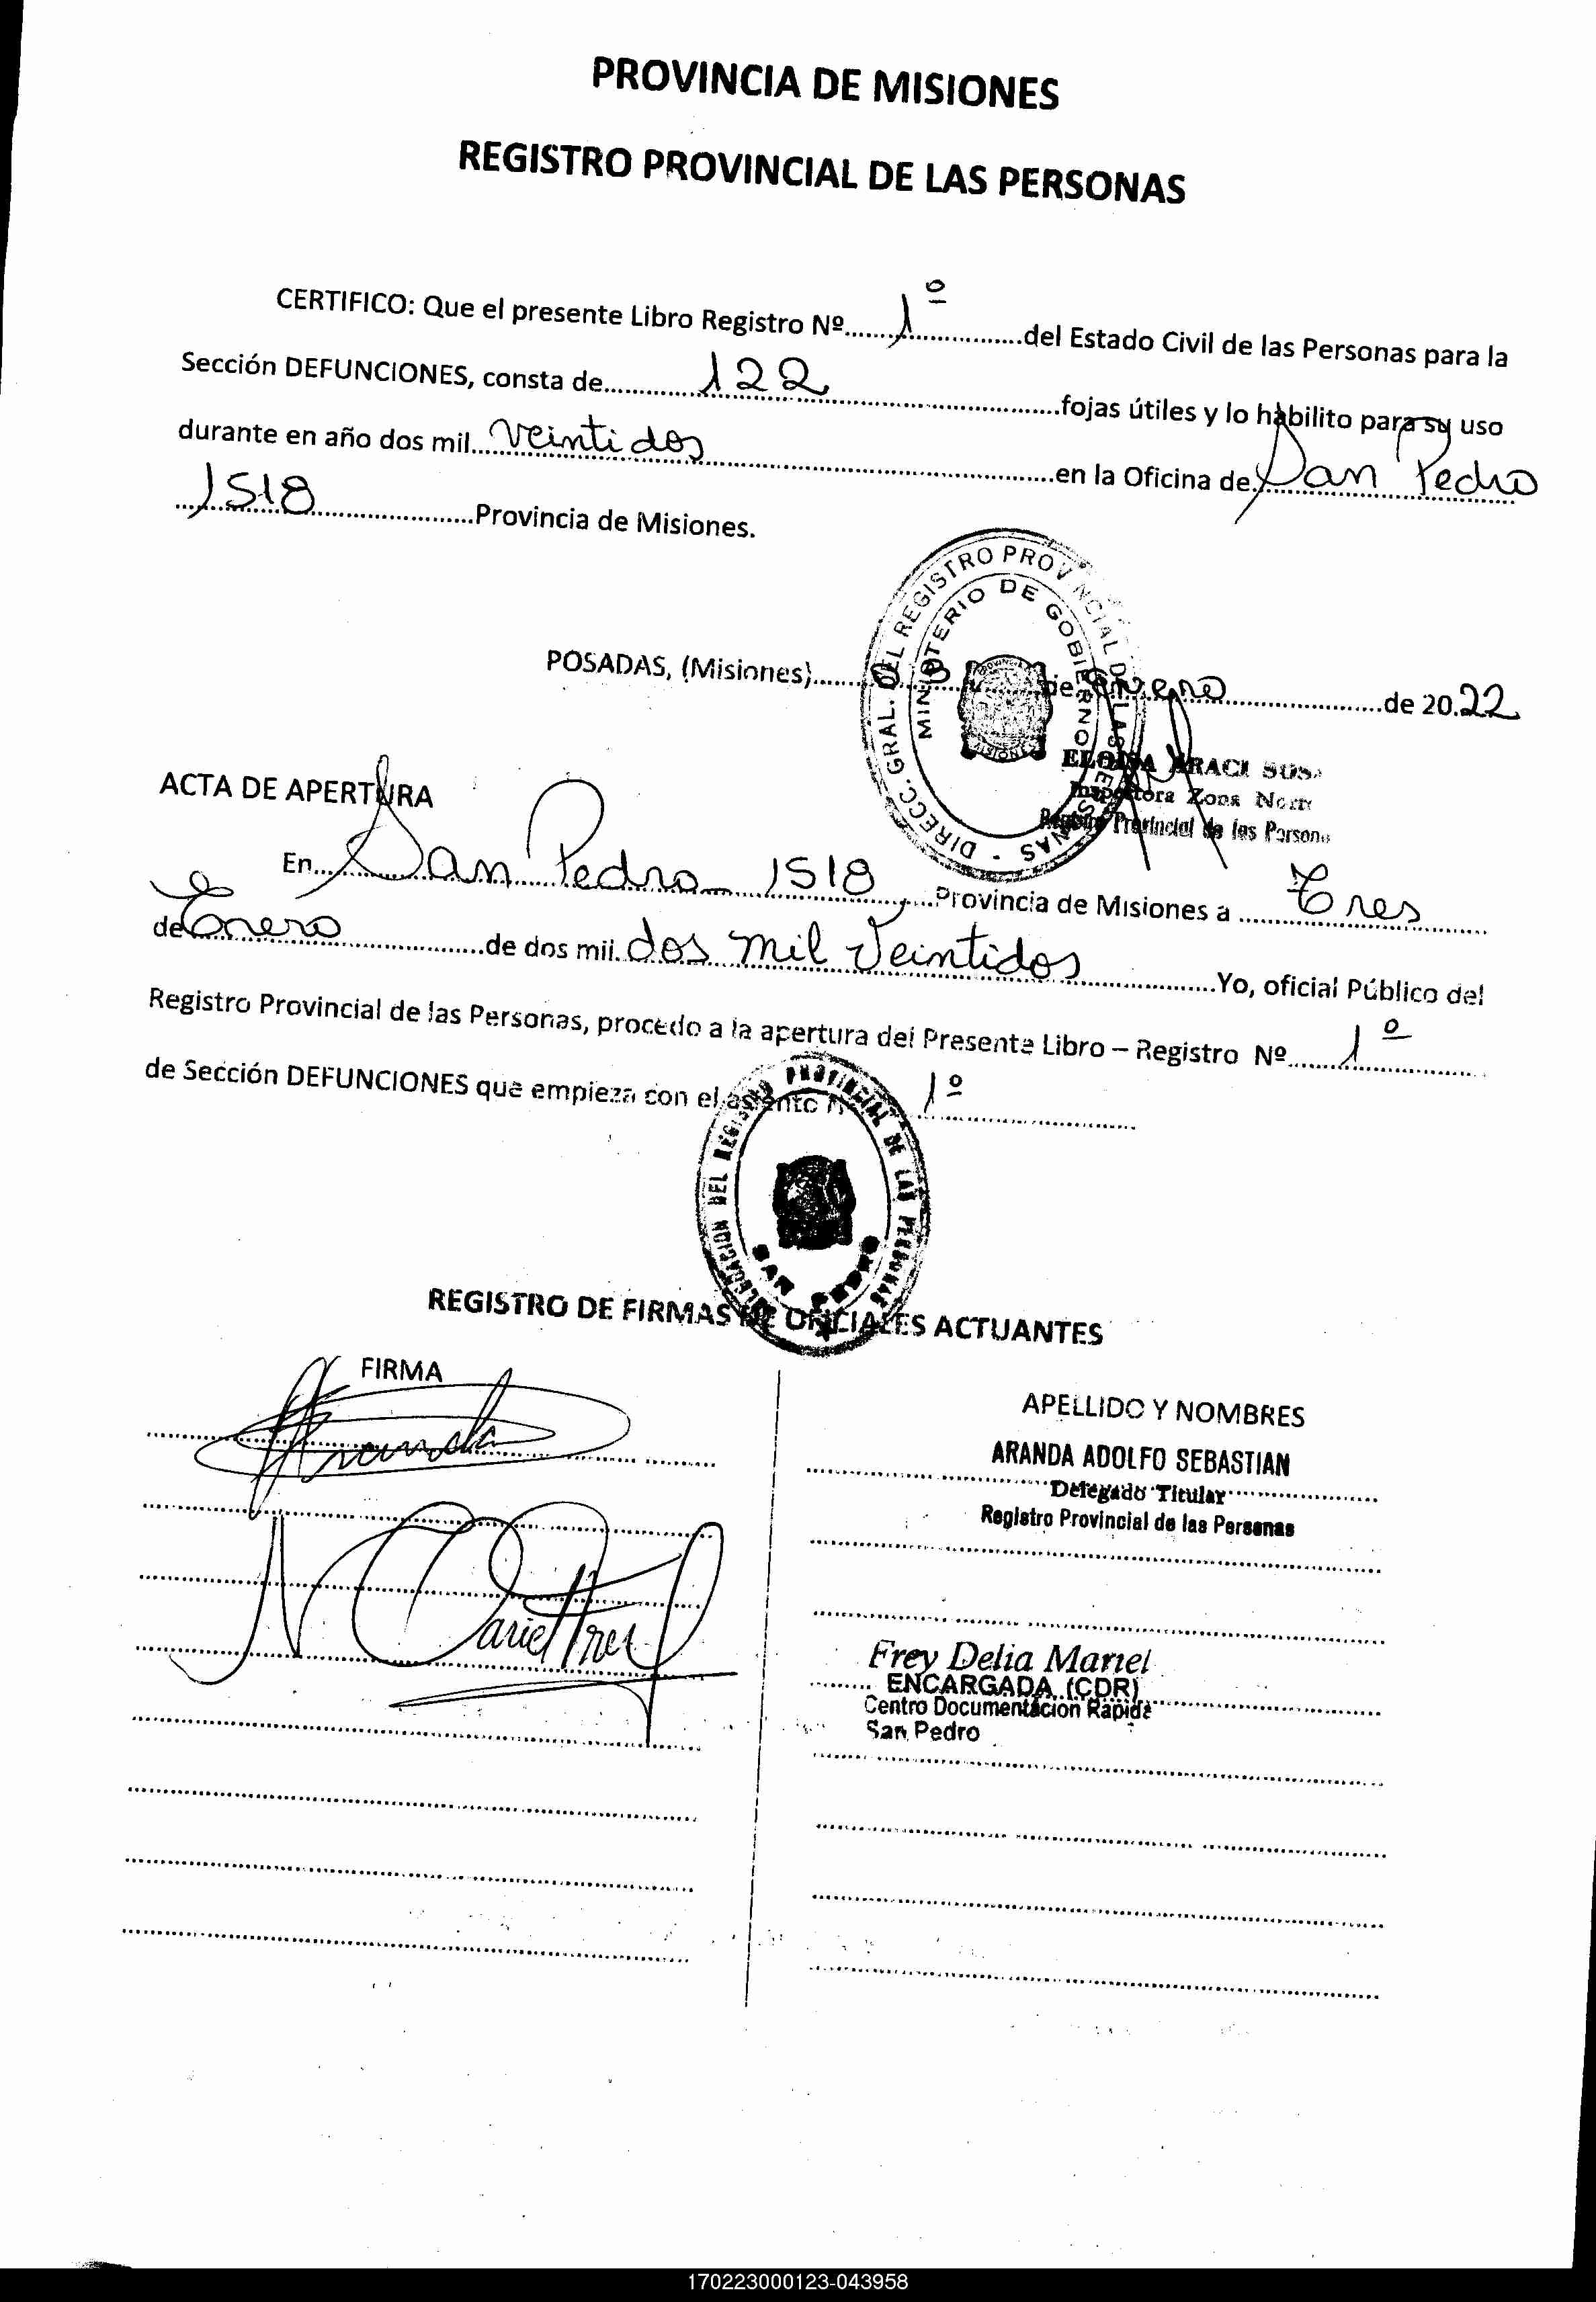 PROVINCIA DE MISIONES
REGISTRO PROVINCIAL DE LAS PERSONAS
CERTIFICO: Que el presente Libro Registro Nº.......1º..............del Estado Civil de las Personas para la
Sección DEFUNCIONES, consta de............122..............................fojas útiles y lo habilito para su uso
durante en año dos mil...Veintidos..............................en la Oficina de.San Pedro
...1518......................Provincia de Misiones.
DIRECC. GRAL. DEL REGISTRO PROVINCIAL DE LAS PERSONAS
MINISTERIO DE GOBIERNO
POSADAS, (Misiones).......03........de.Enero......................de 20.22
ELOISA ARACI SOS
Inspectora Zona Norte
Registro Provincial de las Persona
ACTA DE APERTURA
En...San Pedro 1518......Provincia de Misiones a ....Tres........
de Enero..................de dos mil.dos mil Veintidos..................Yo, oficial Público del
Registro Provincial de las Personas, procedo a la apertura del Presente Libro – Registro Nº......1º..........
de Sección DEFUNCIONES que empieza con el asiento 1º
DELEGACION DEL REGISTRO PROVINCIAL DE LAS PERSONAS
SAN PEDRO
REGISTRO DE FIRMAS DE OFICIALES ACTUANTES
FIRMA
APELLIDO Y NOMBRES
Aranda
ARANDA ADOLFO SEBASTIAN
Delegado Titular
Registro Provincial de las Personas
Mariel Frey
Frey Delia Mariel
ENCARGADA (CDR)
Centro Documentación Rapida
San Pedro
170223000123-043958